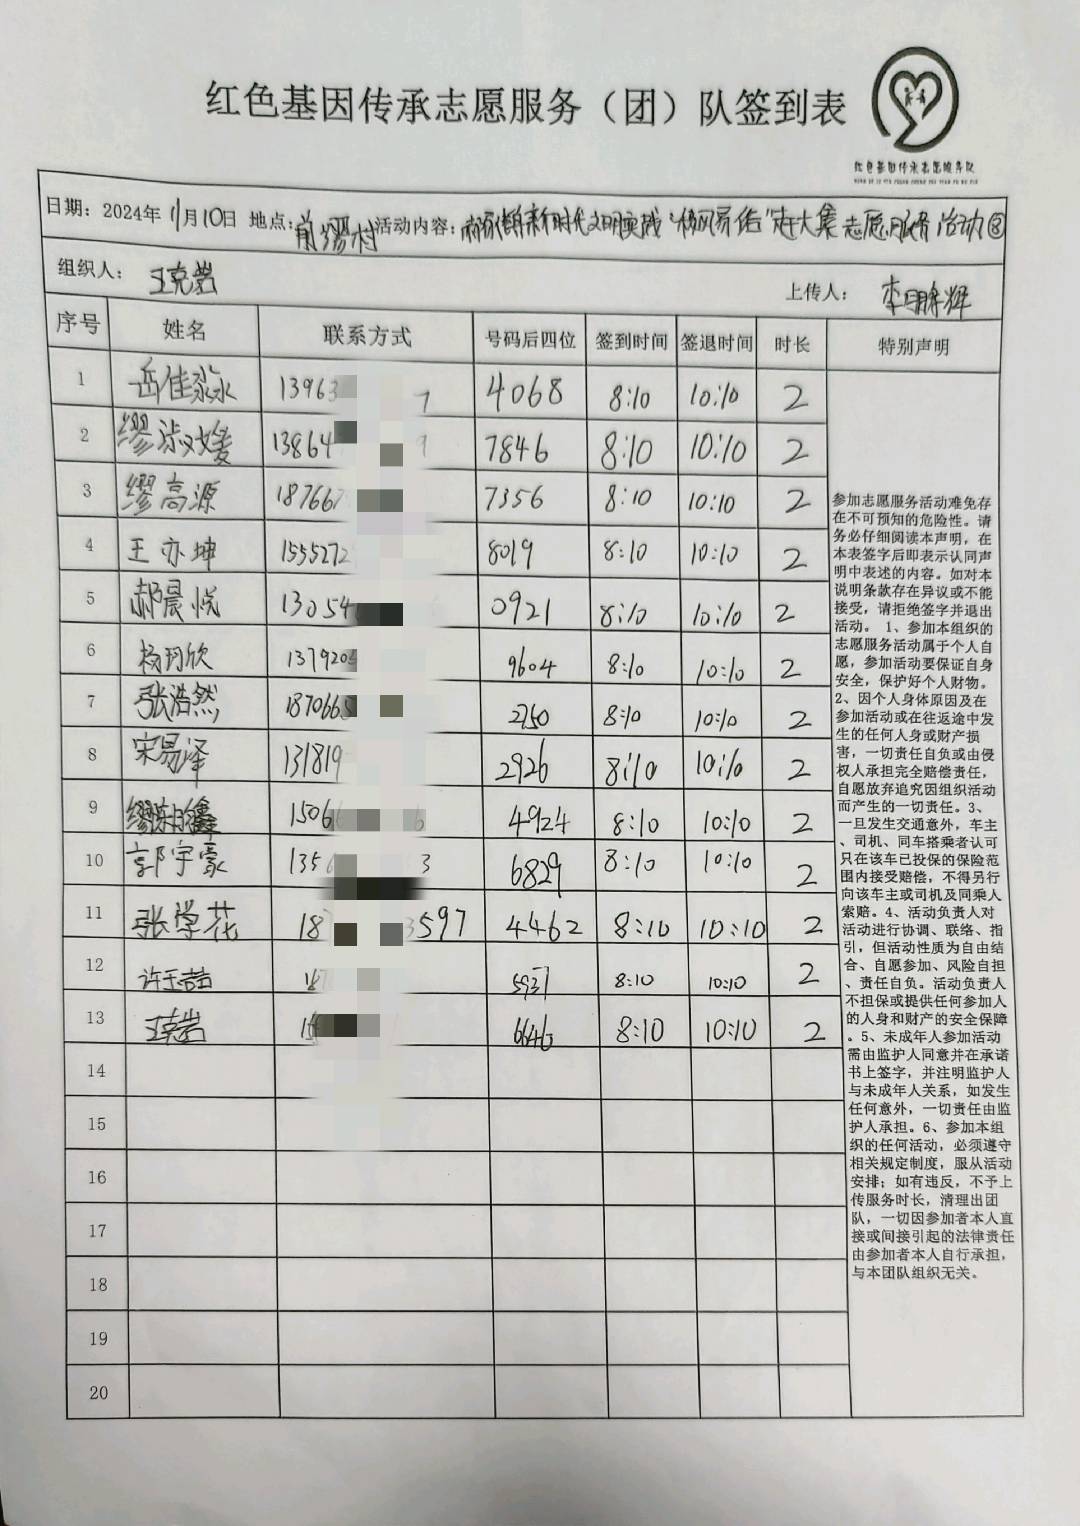 红色基因传承志愿服务（团）队签到表
红色基因传承志愿服务队
日期：2024年 11月10日 地点：前缪村 活动内容：新时代文明实践"移风易俗"赶大集志愿服务活动⑧
组织人：王克岩 上传人：
序号 姓名 联系方式 号码后四位 签到时间 签退时间 时长 特别声明
1 岳佳淼 13963 7 4068 8:10 10:10 2
2 缪淑媛 13864 9 7846 8:10 10:10 2
3 缪高源 18766 7356 8:10 10:10 2
4 王亦坤 1555272 8019 8:10 10:10 2
5 郝晨悦 13054 0921 8:10 10:10 2
6 杨玥欣 1379205 9604 8:10 10:10 2
7 张浩然 1870665 2750 8:10 10:10 2
8 宋易泽 131819 2926 8:10 10:10 2
9 1506 6 4924 8:10 10:10 2
10 郭宇豪 135 3 6829 8:10 10:10 2
11 张学花 18 3597 4462 8:10 10:10 2
12 许玉喆 5937 8:10 10:10 2
13 王克岩 6646 8:10 10:10 2
14
15
16
17
18
19
20
参加志愿服务活动难免存
在不可预知的危险性。请
务必仔细阅读本声明，在
本表签字后即表示认同声
明中表述的内容。如对本
说明条款存在异议或不能
接受，请拒绝签字并退出
活动。 1、参加本组织的
志愿服务活动属于个人自
愿，参加活动要保证自身
安全，保护好个人财物。
2、因个人身体原因及在
参加活动或在往返途中发
生的任何人身或财产损
害，一切责任自负或由侵
权人承担完全赔偿责任，
自愿放弃追究因组织活动
而产生的一切责任。3、
一旦发生交通意外，车主
、司机、同车搭乘者认可
只在该车已投保的保险范
围内接受赔偿，不得另行
向该车主或司机及同乘人
索赔。4、活动负责人对
活动进行协调、联络、指
引，但活动性质为自由结
合、自愿参加、风险自担
、责任自负。活动负责人
不担保或提供任何参加人
的人身和财产的安全保障
。5、未成年人参加活动
需由监护人同意并在承诺
书上签字，并注明监护人
与未成年人关系，如发生
任何意外，一切责任由监
护人承担。6、参加本组
织的任何活动，必须遵守
相关规定制度，服从活动
安排；如有违反，不予上
传服务时长，清理出团
队，一切因参加者本人直
接或间接引起的法律责任
由参加者本人自行承担，
与本团队组织无关。